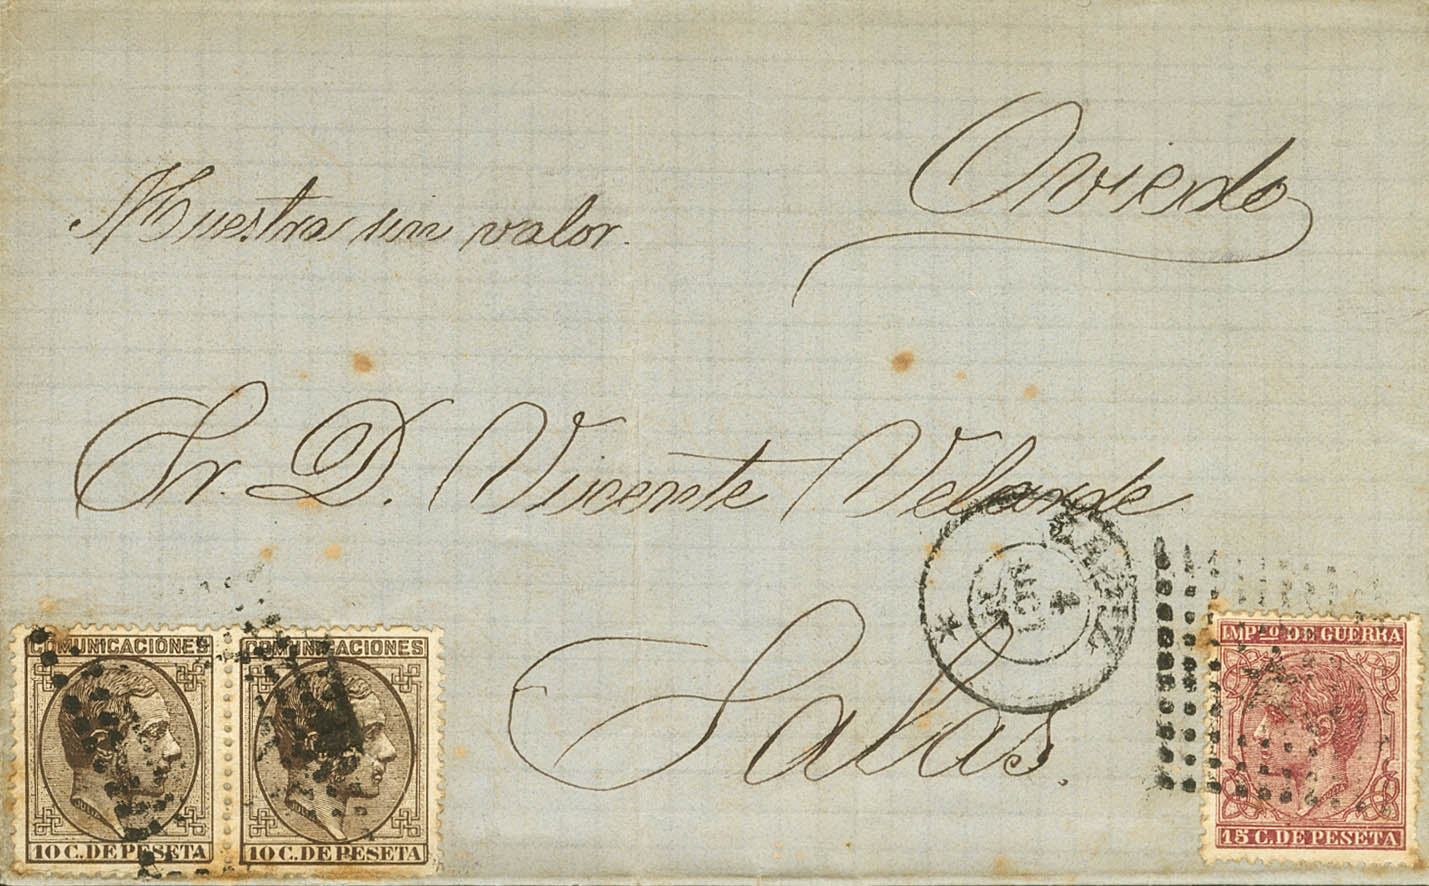 Oviedo
Muestra sin valor.
Sr. D. Vicente Velarde
Salas.
COMUNICACIONES
10 C. DE PESETA
COMUNICACIONES
10 C. DE PESETA
4
IMPTO DE GUERRA
15 C. DE PESETA